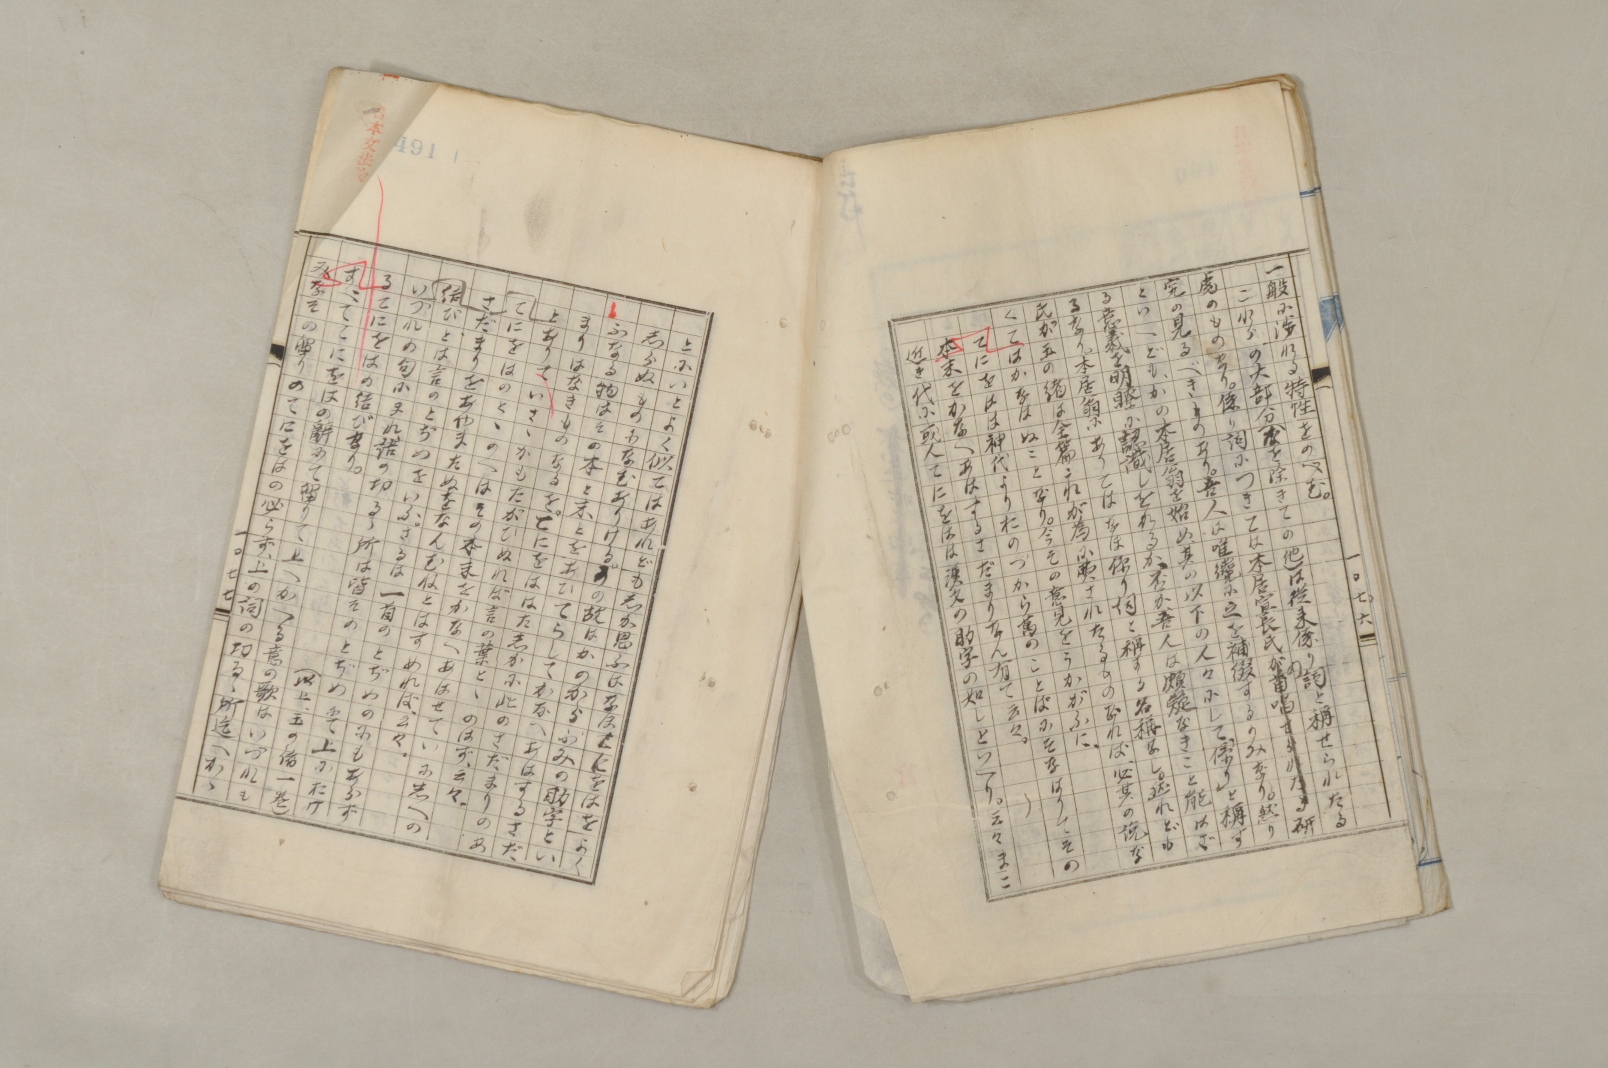 一般に渉れる特性をのべむ。
これらの大部分を除きての他は従来係り詞と称せられたる
ものなり。係り詞につきては本居宣長氏が首唱せられたる研
究の見るべきものあり。吾人は唯纔に之を補綴するのみなり。然り
といへどもかの本居翁を始め其の以下の人々にして「係り」と称す
る意義を明瞭に認識しをれるか否か吾人は頗疑なきこと能はざ
るなり。本居翁にありてはなほ係り詞と称する名称なし。されども
氏が玉の緒は全篇これが為に費されたるものなれば、必其の説な
くてはかなはぬことなり。今その意見をうかがふに、
てにをはは神代よりおのづから万のことばにそなはりてその
本末をかなへあはするさだまりなん有て云々。
近き代に或人てにをはは漢文の助字の如しといへり。云々まこ
一〇七六
とにいとよく似てはあれどもしか思ふはなほてにをはをよく
しらぬものになむありける。その故はかのからぶみの助字とい
ふなる物はその本と末とをあひてらしてかなへあはするさだ
まりはなきものなるを。てにをははたしかに此のさだまりのあ
とありていささかもたがひぬれば言の葉とゝのはず、云々。
てにをはのとゝのへはその本末をかなへあはせていにしへの
さだまりをあやまたぬをなんむねとはすめれば、云々。
結びとは言のとぢめをいふ。さるは一首のとぢめのみにもあらず
いづれの句にまれ語の切るゝ所は皆そのとぢめにて上におけ
るてにをはの結びなり。
(以上玉の緒一巻
すべててにをはの辞にて留りて上へかへる意の歌はいづれも
みなその留りのてにをはの必らず、上の詞の切るゝ所迄へかゝ
一〇七七
491
日本文法論